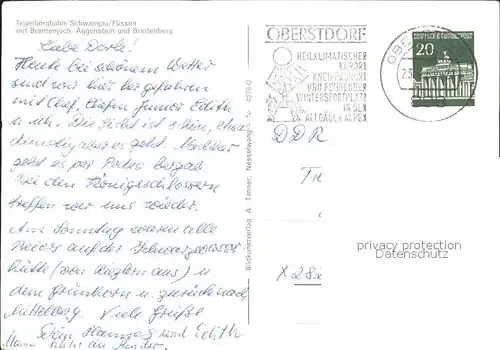 Tegelbergbahn Schwangau/Füssen
mit Brentenjoch, Aggenstein und Breitenberg
Liebe Dorle!
Heute bei schönem Wetter
sind wir hier her gefahren
mit Chef, Chefin Junior Edith
u. ich. Die Sicht ist schön,
aber es geht. Nachher
geht es per Pedes bergab
bei den Königsschlössern
treffen wir uns wieder.
Am Sonntag waren alle
auf der Schwarzwasser
hütte (von aus) u.
dem Grünhorn u. zurück nach
Mittelberg. Viele Grüße
Dein Hannes und Edith
Mama
Bildkunstverlag A. Tanner, Nesselwang Nr. 4076-O
OBERSTDORF
HEILKLIMATISCHER
KURORT
KNEIPPKURORT
UND FÜHRENDER
WINTERSPORTPLATZ
IN DEN
ALLGÄUER ALPEN
OBE
DEUTSCHE BUNDESPOST
20
DDR
TH
X 282
privacy protection
Datenschutz